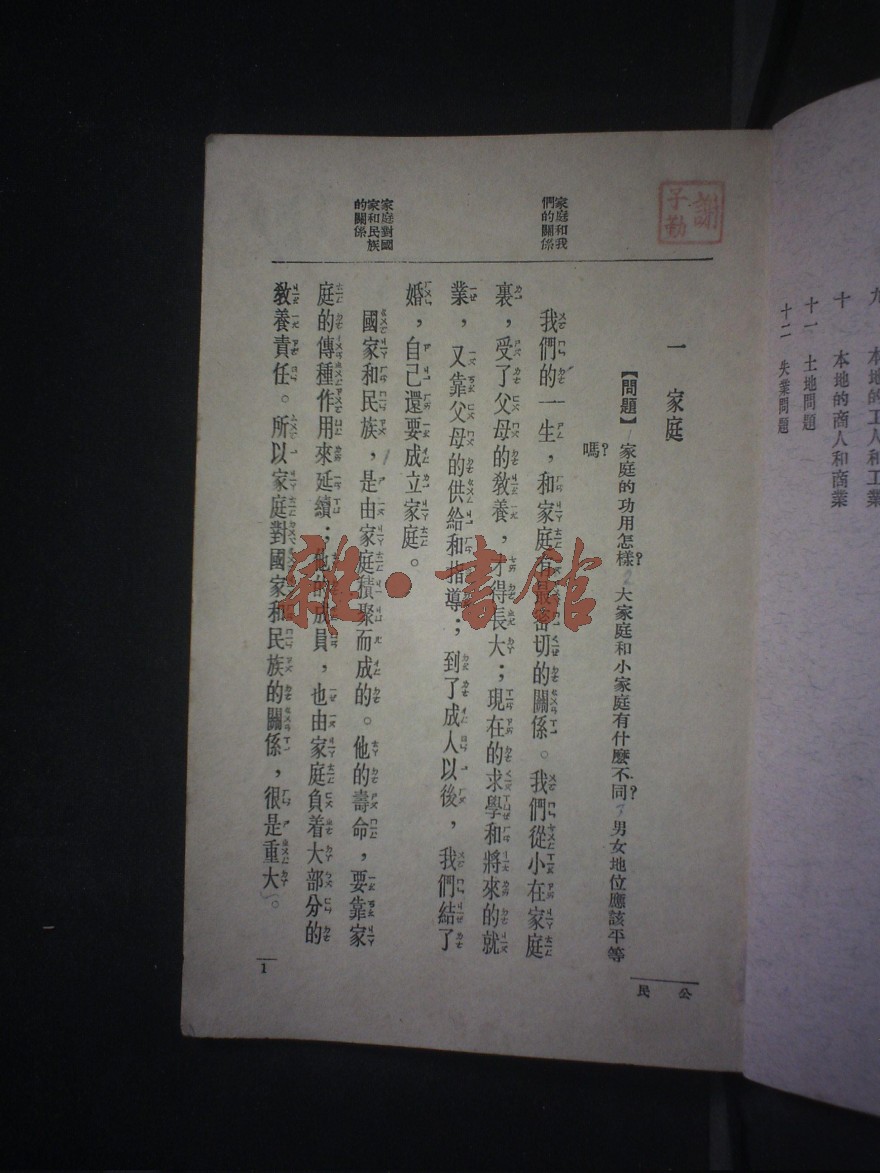 九 本地的工人和工業
十 本地的商人和商業
十一 土地問題
十二 失業問題
謝子勤
公民
一 家庭
【問題】 家庭的功用怎樣?大家庭和小家庭有什麼不同?男女地位應該平等
嗎?
家庭和我
們的關係
我們的一生,和家庭有最密切的關係。我們從小在家庭
裏,受了父母的教養,才得長大;現在的求學和將來的就
業,又靠父母的供給和指導;到了成人以後,我們結了
婚,自己還要成立家庭。
家庭對國
家和民族
的關係
國家和民族,是由家庭積聚而成的。他的壽命,要靠家
庭的傳種作用來延續;他的成員,也由家庭負着大部分的
教養責任。所以家庭對國家和民族的關係,很是重大。
1
雜·書館